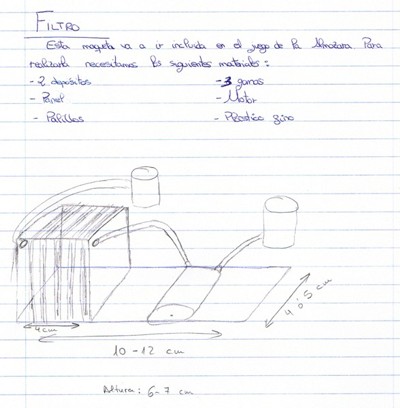 FILTRO
Esta maqueta va a ir incluida en el juego de la Almazara. Para
realizarla necesitamos los siguientes materiales:
- 2 depósitos
- 3 gomas
- Panel
- Motor
- Palillos
- Plástico fino
4 cm
10 - 12 cm
4 ó 5 cm
Altura: 6-7 cm